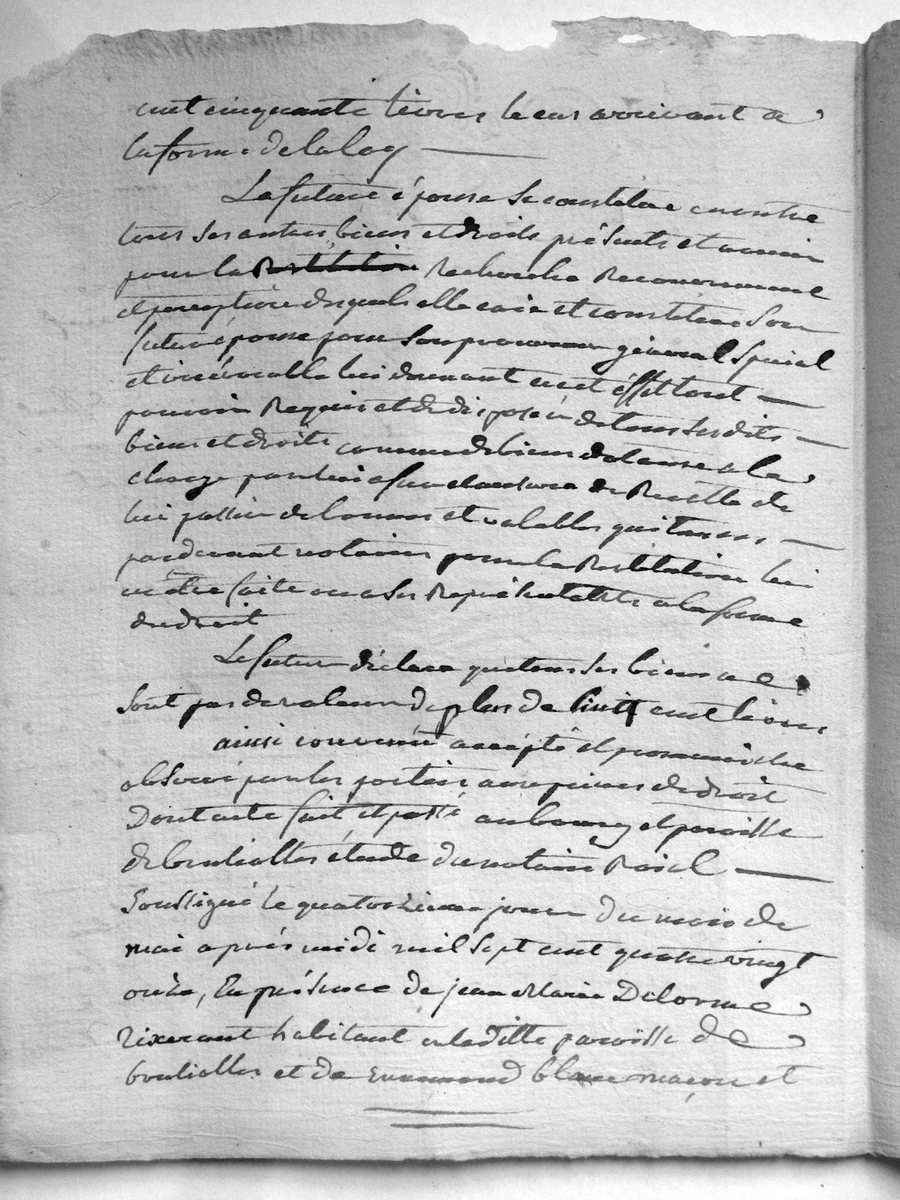 cent cinquante livres le cas arrivant a
la forme de la loy
La future épouse se constitue en outre
tous ses autres biens et droits présents et avenir
pour la Recherche Recouvrement
et perception desquels elle crée et constitue son
futur époux pour son procureur général spécial
et irrévocable lui donnant en cet effet tout
pouvoir Requis et de disposer de tous ses dits
biens et droits comme de biens dotaux a la
charge par lui a fur et mesure de Recette de
lui passer de bonnes et valables quittances
pardevant notaires pour la Restitution lui
en être faite ou a ses Représentants a la forme
du droit
Le futur déclare que tous ses biens ne
sont pas de valeur de plus de huit cent livres
ainsi convenu accepté et promis être
observé par les parties aux peines de droit
Dont acte fait et passé au bourg et paroisse
de brulialles étude du notaire Roial
soussigné le quatorzieme jour du mois de
mai après midi mil sept cent quatre vingt
onze, En présence de jean Marie Delorme
tixerant habitant en laditte paroisse de
brulialles et de Ennemond maçon et